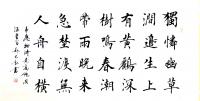 獨憐幽草
澗邊生上
有黃鸝深
樹鳴春潮
帶雨晚來
急野渡無
人舟自橫